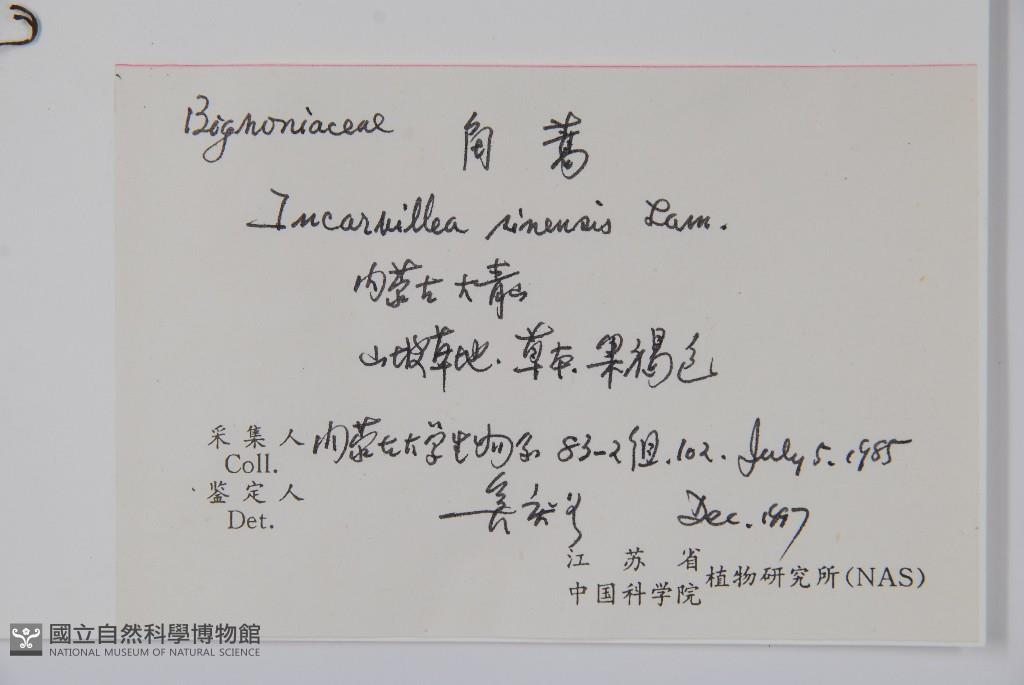 Bignoniaceae 角 蒿
Incarvillea sinensis Lam.
内蒙古大青山
山坡草地. 草本. 果褐色
采集人 内蒙古大学生物系 83-2组. 102. July 5. 1985
Coll.
鉴定人 Dec. 1997
Det.
江苏省
中国科学院 植物研究所(NAS)
國立自然科學博物館
NATIONAL MUSEUM OF NATURAL SCIENCE